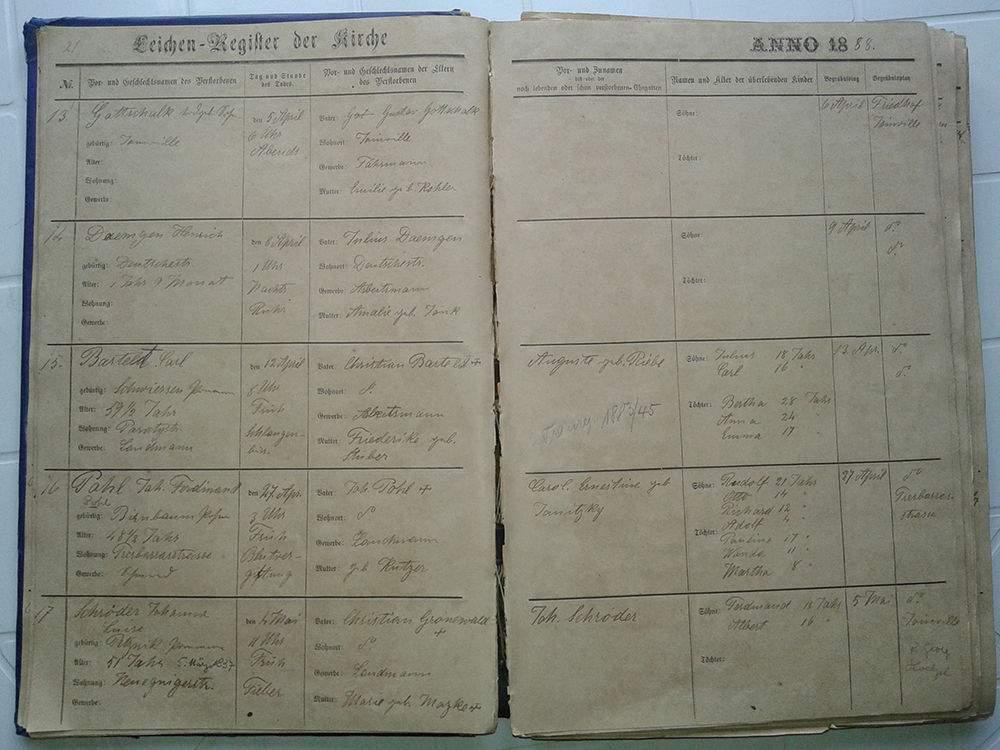 21
Leichen-Register der Kirche
ANNO 1888.
№.
Vor- und Geschlechtsnamen des Verstorbenen
Tag und Stunde des Todes.
Vor- und Geschlechtsnamen der Eltern des Verstorbenen
Vor- und Zunamen
des noch lebenden oder schon verstorbenen Ehegatten
Namen und Alter der überlebenden Kinder
Begräbnißtag
Begräbnißplatz
13
Gottschalk
gebürtig: Joinville
Alter:
Wohnung:
Gewerbe:
den 5 April
6 Uhr
Abends
Vater: Gustav Gottschalk
Wohnort: Joinville
Gewerbe: Fuhrmann
Mutter: Emilie geb. Köhler
Söhne:
Töchter:
6 April
Friedhof
Joinville
14
Daemgen Heinrich
gebürtig: Deutschestr.
Alter: 1 Jahr 9 Monat
Wohnung:
Gewerbe:
den 8 April
1 Uhr
Nachts
Ruhr
Vater: Julius Daemgen
Wohnort: Deutschestr.
Gewerbe: Arbeitsmann
Mutter: Amalie geb. Jonk
Söhne:
Töchter:
9 April
15.
Barteldt Carl
gebürtig: Schwiersen Pommern
Alter: 59½ Jahr
Wohnung:
Gewerbe: Landmann
den 12 April
8 Uhr
Früh
Schlangen-
Vater: Christian Barteldt +
Wohnort:
Gewerbe: Arbeitsmann
Mutter: Friederike geb.
Stuber
Auguste geb. Riebe
Söhne: Julius 18 Jahr
Carl 16 "
Töchter: Bertha 28 Jahr
Anna 24
Emma 17 "
13. Apr.
16
Pahl Joh. Ferdinand
Pohl
gebürtig: Birnbaum Posen
Alter: 48½ Jahr
Wohnung:
Gewerbe:
den 27 Apr.
3 Uhr
Früh
Blutver-
giftung
Vater: Joh. Pohl +
Wohnort:
Gewerbe: Landmann
Mutter: geb. Kutzer
Carol. Ernestine geb
Janitzky
Söhne: Rudolf 21 Jahr
Otto 14 "
Richard 12 "
Adolf 4 "
Töchter: Pauline 17 "
Wanda 11 "
Martha 8 "
27 April
strasse
17
Schröder Johanna
Luise
gebürtig: Pommern
Alter: 51 Jahr 5. März 1837
Wohnung:
Gewerbe:
den 4 Mai
11 Uhr
Früh
Fieber
Vater: Christian Gronewald
+
Wohnort:
Gewerbe: Landmann
Mutter: Marie geb. Mazke +
Joh. Schröder
Söhne: Ferdinand 18 Jahr
Albert 16 "
Töchter:
5 Mai
Joinville